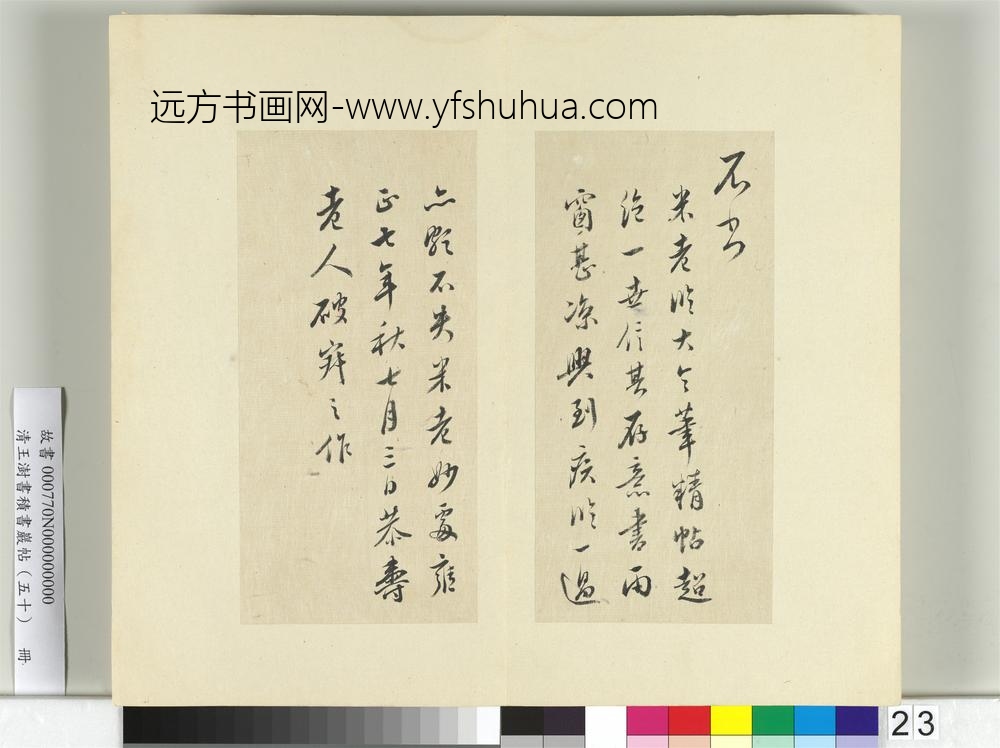 远方书画网-www.yfshuhua.com
不
米老臨大令筆精帖超
絕一世信其存意書雨
窗甚涼興到疾臨一過
亦 不失米老妙處雍
正七年秋七月三日恭壽
老人破 之作
故書 000770N000000000
清王澍書積書巖帖（五十） 冊
23